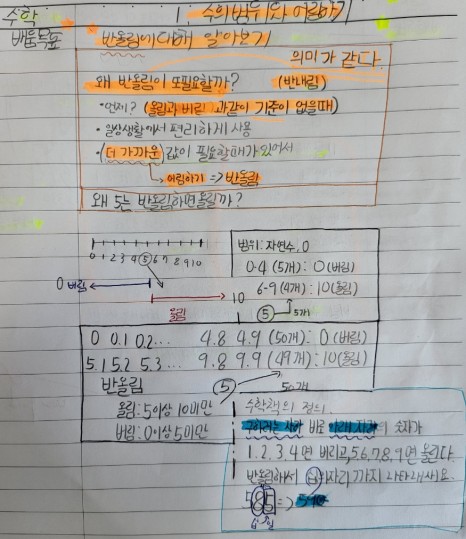 수학 1. 수의 범위와 어림하기
배움목표 반올림에 대해 알아보기
의미가 같다
왜 반올림이 또 필요할까? (반내림)
• 언제? (올림과 버림과 같이 기준이 없을 때)
• 일상생활에서 편리하게 사용
• (더 가까운) 값이 필요할 때가 있어서
→ 어림하기 => 반올림
왜 5는 반올림하면 올림까?
0 1 2 3 4 5 6 7 8 9 10
0 버림
올림 10
범위: 자연수, 0
0-4 (5개): 0 (버림)
6-9 (4개): 10 (올림)
5 5개
0 0.1 0.2... 4.8 4.9 (50개): 0 (버림)
5.1 5.2 5.3... 9.8 9.9 (49개): 10 (올림)
5 50개
반올림
올림: 5이상 10미만
버림: 0이상 5미만
수학책의 정의
구하려는 자리 바로 아래 자리의 숫자가
1, 2, 3, 4면 버리고, 5, 6, 7, 8, 9면 올린다.
반올림해서 십의 자리까지 나타내시오.
585 => 590
십 일